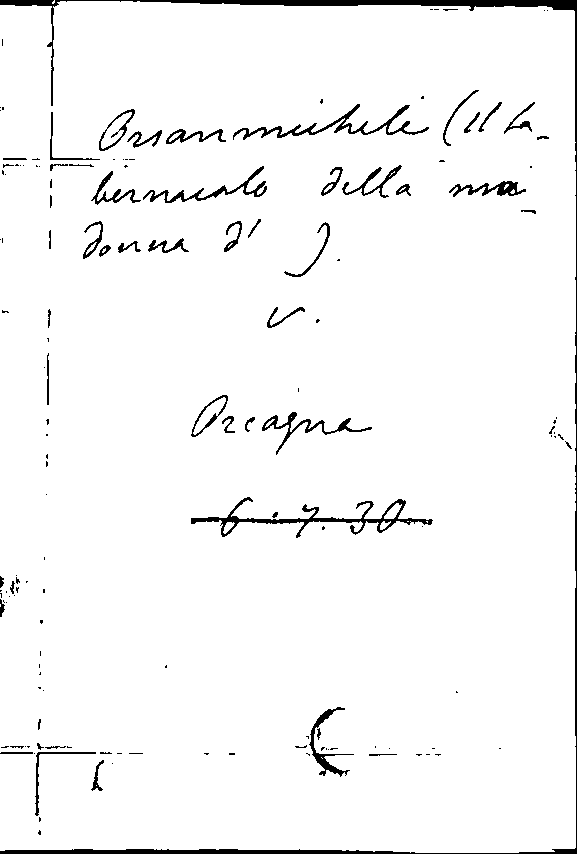 Orsanmichele (Il ta-
bernacolo della ma-
donna d' ).
v.
Orcagna
6.7.30